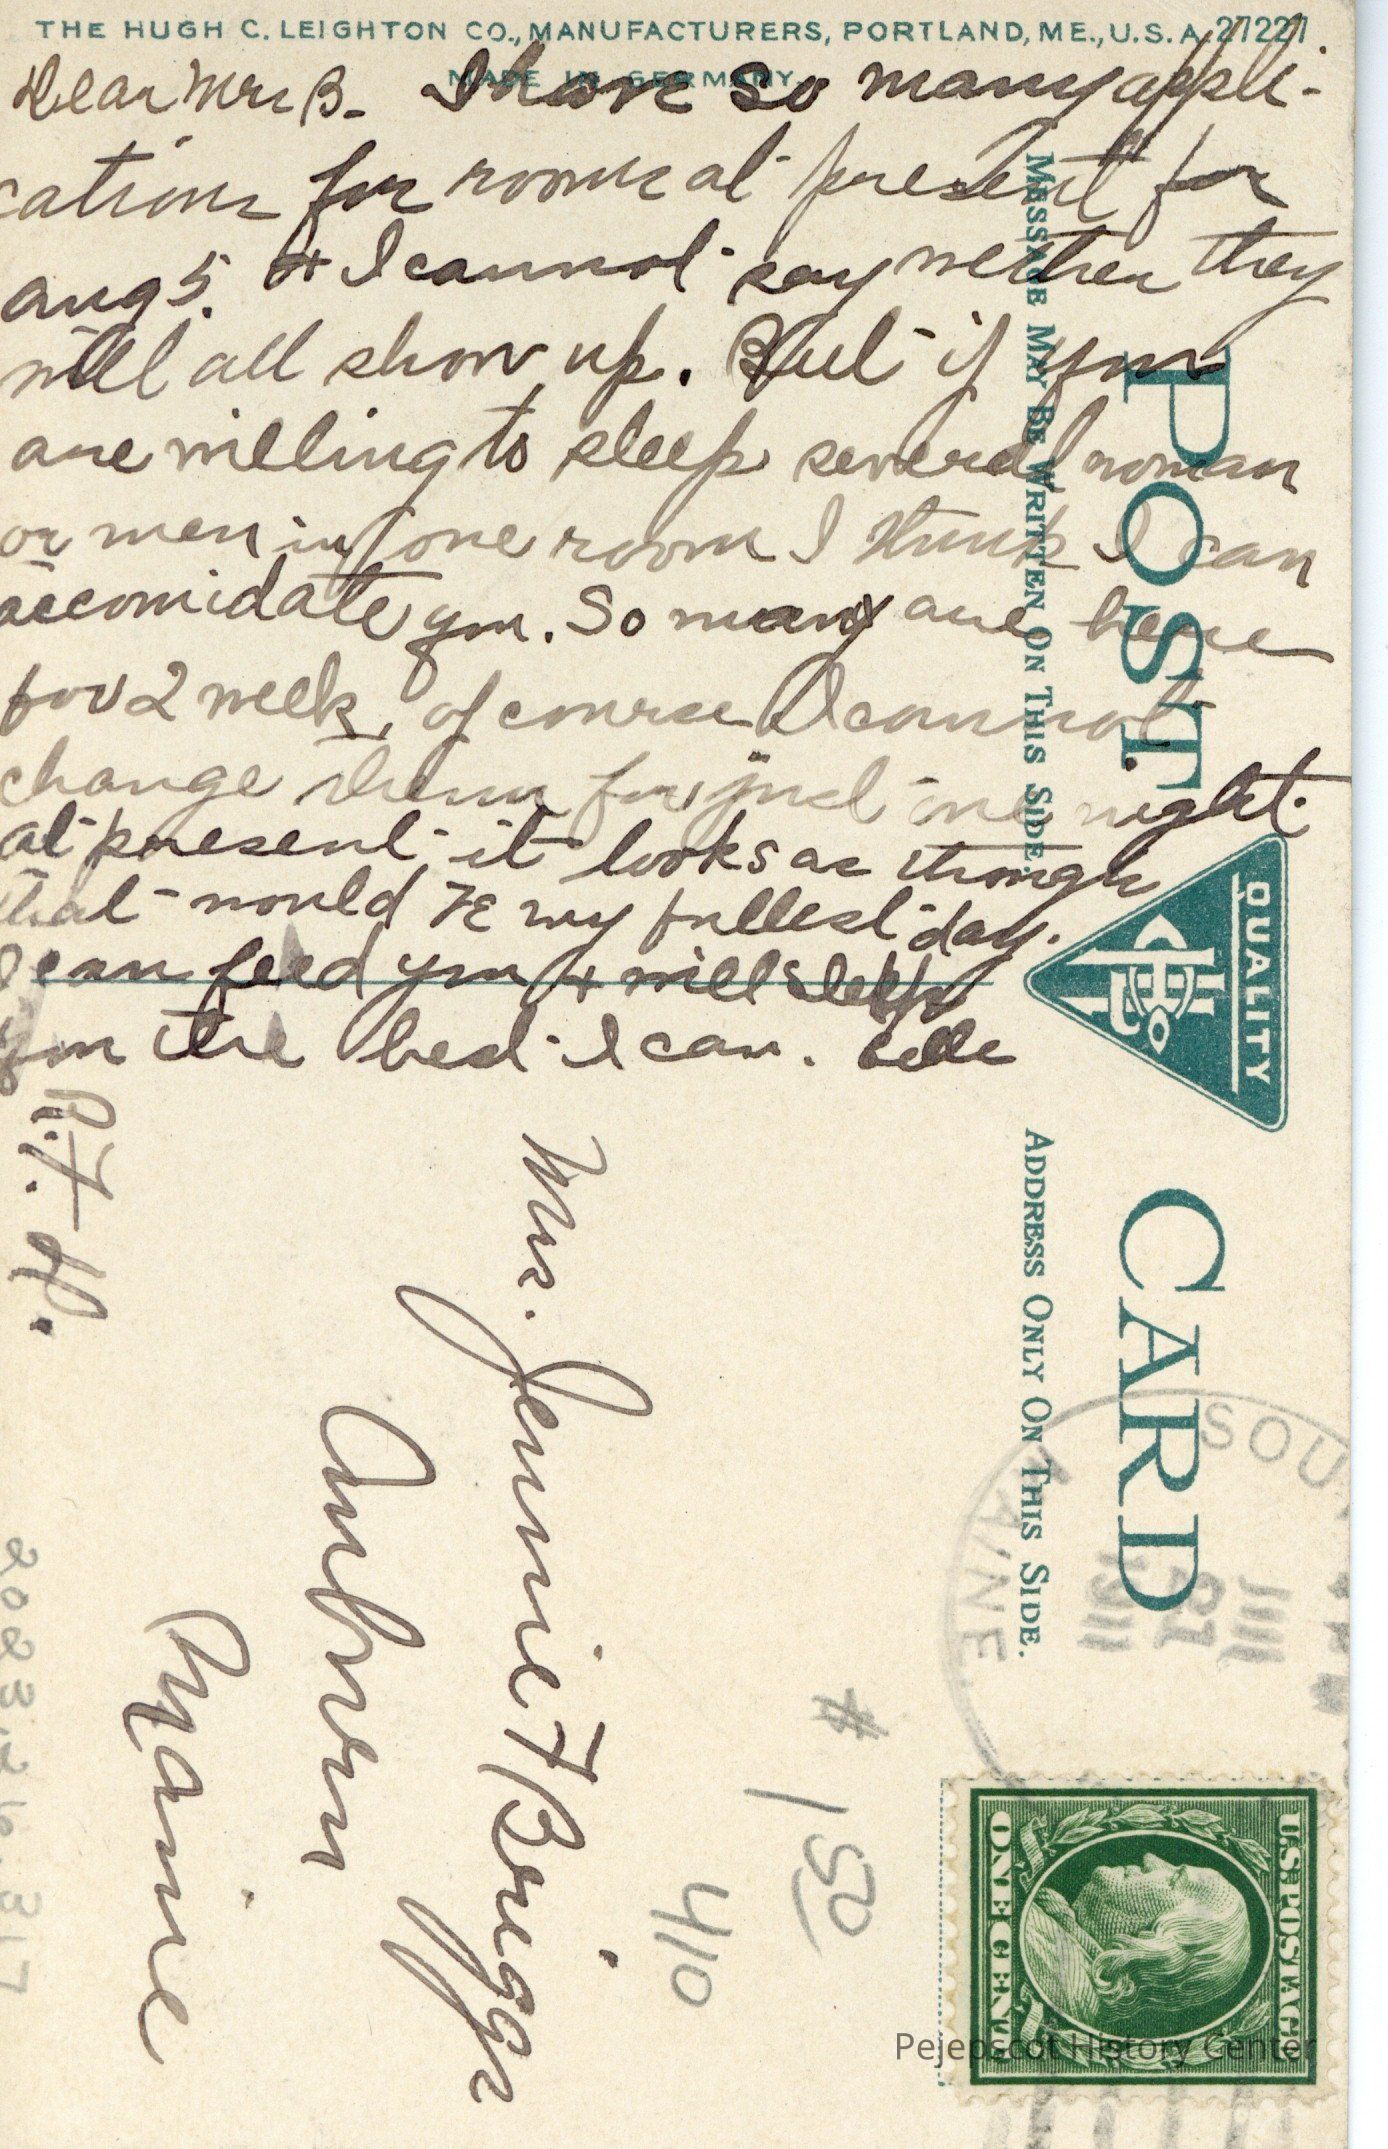 THE HUGH C. LEIGHTON CO., MANUFACTURERS, PORTLAND, ME., U.S.A. 27221.
MADE IN GERMANY.
Dear Mrs B. I have so many appli-
cations for rooms at present for
Aug 5. + I cannot say wether they
will all show up. But if you
are willing to sleep several woman
or men in one room I think I can
accomidate you. So many are here
for 2 week, of course I cannot
change them for just one night.
at present it looks as though
that would be my fullest day.
I can feed you + will sleep
you the best I can. Belle
R.F.H.
POST CARD
MESSAGE MAY BE WRITTEN ON THIS SIDE.
ADDRESS ONLY ON THIS SIDE.
QUALITY
SOU
MAINE
1911
U.S. POSTAGE
ONE CENT
# 150
410
Mrs. Jennie F Briggs
Auburn
Maine
2023.26.317
Pejepscot History Center